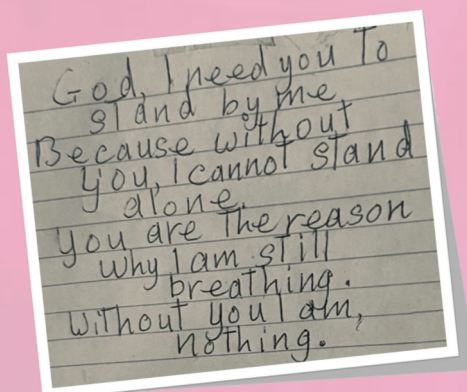 God, I need you To
stand by me
Because without
you, I cannot stand
alone.
you are The reason
why I am still
breathing.
Without you I am,
nothing.